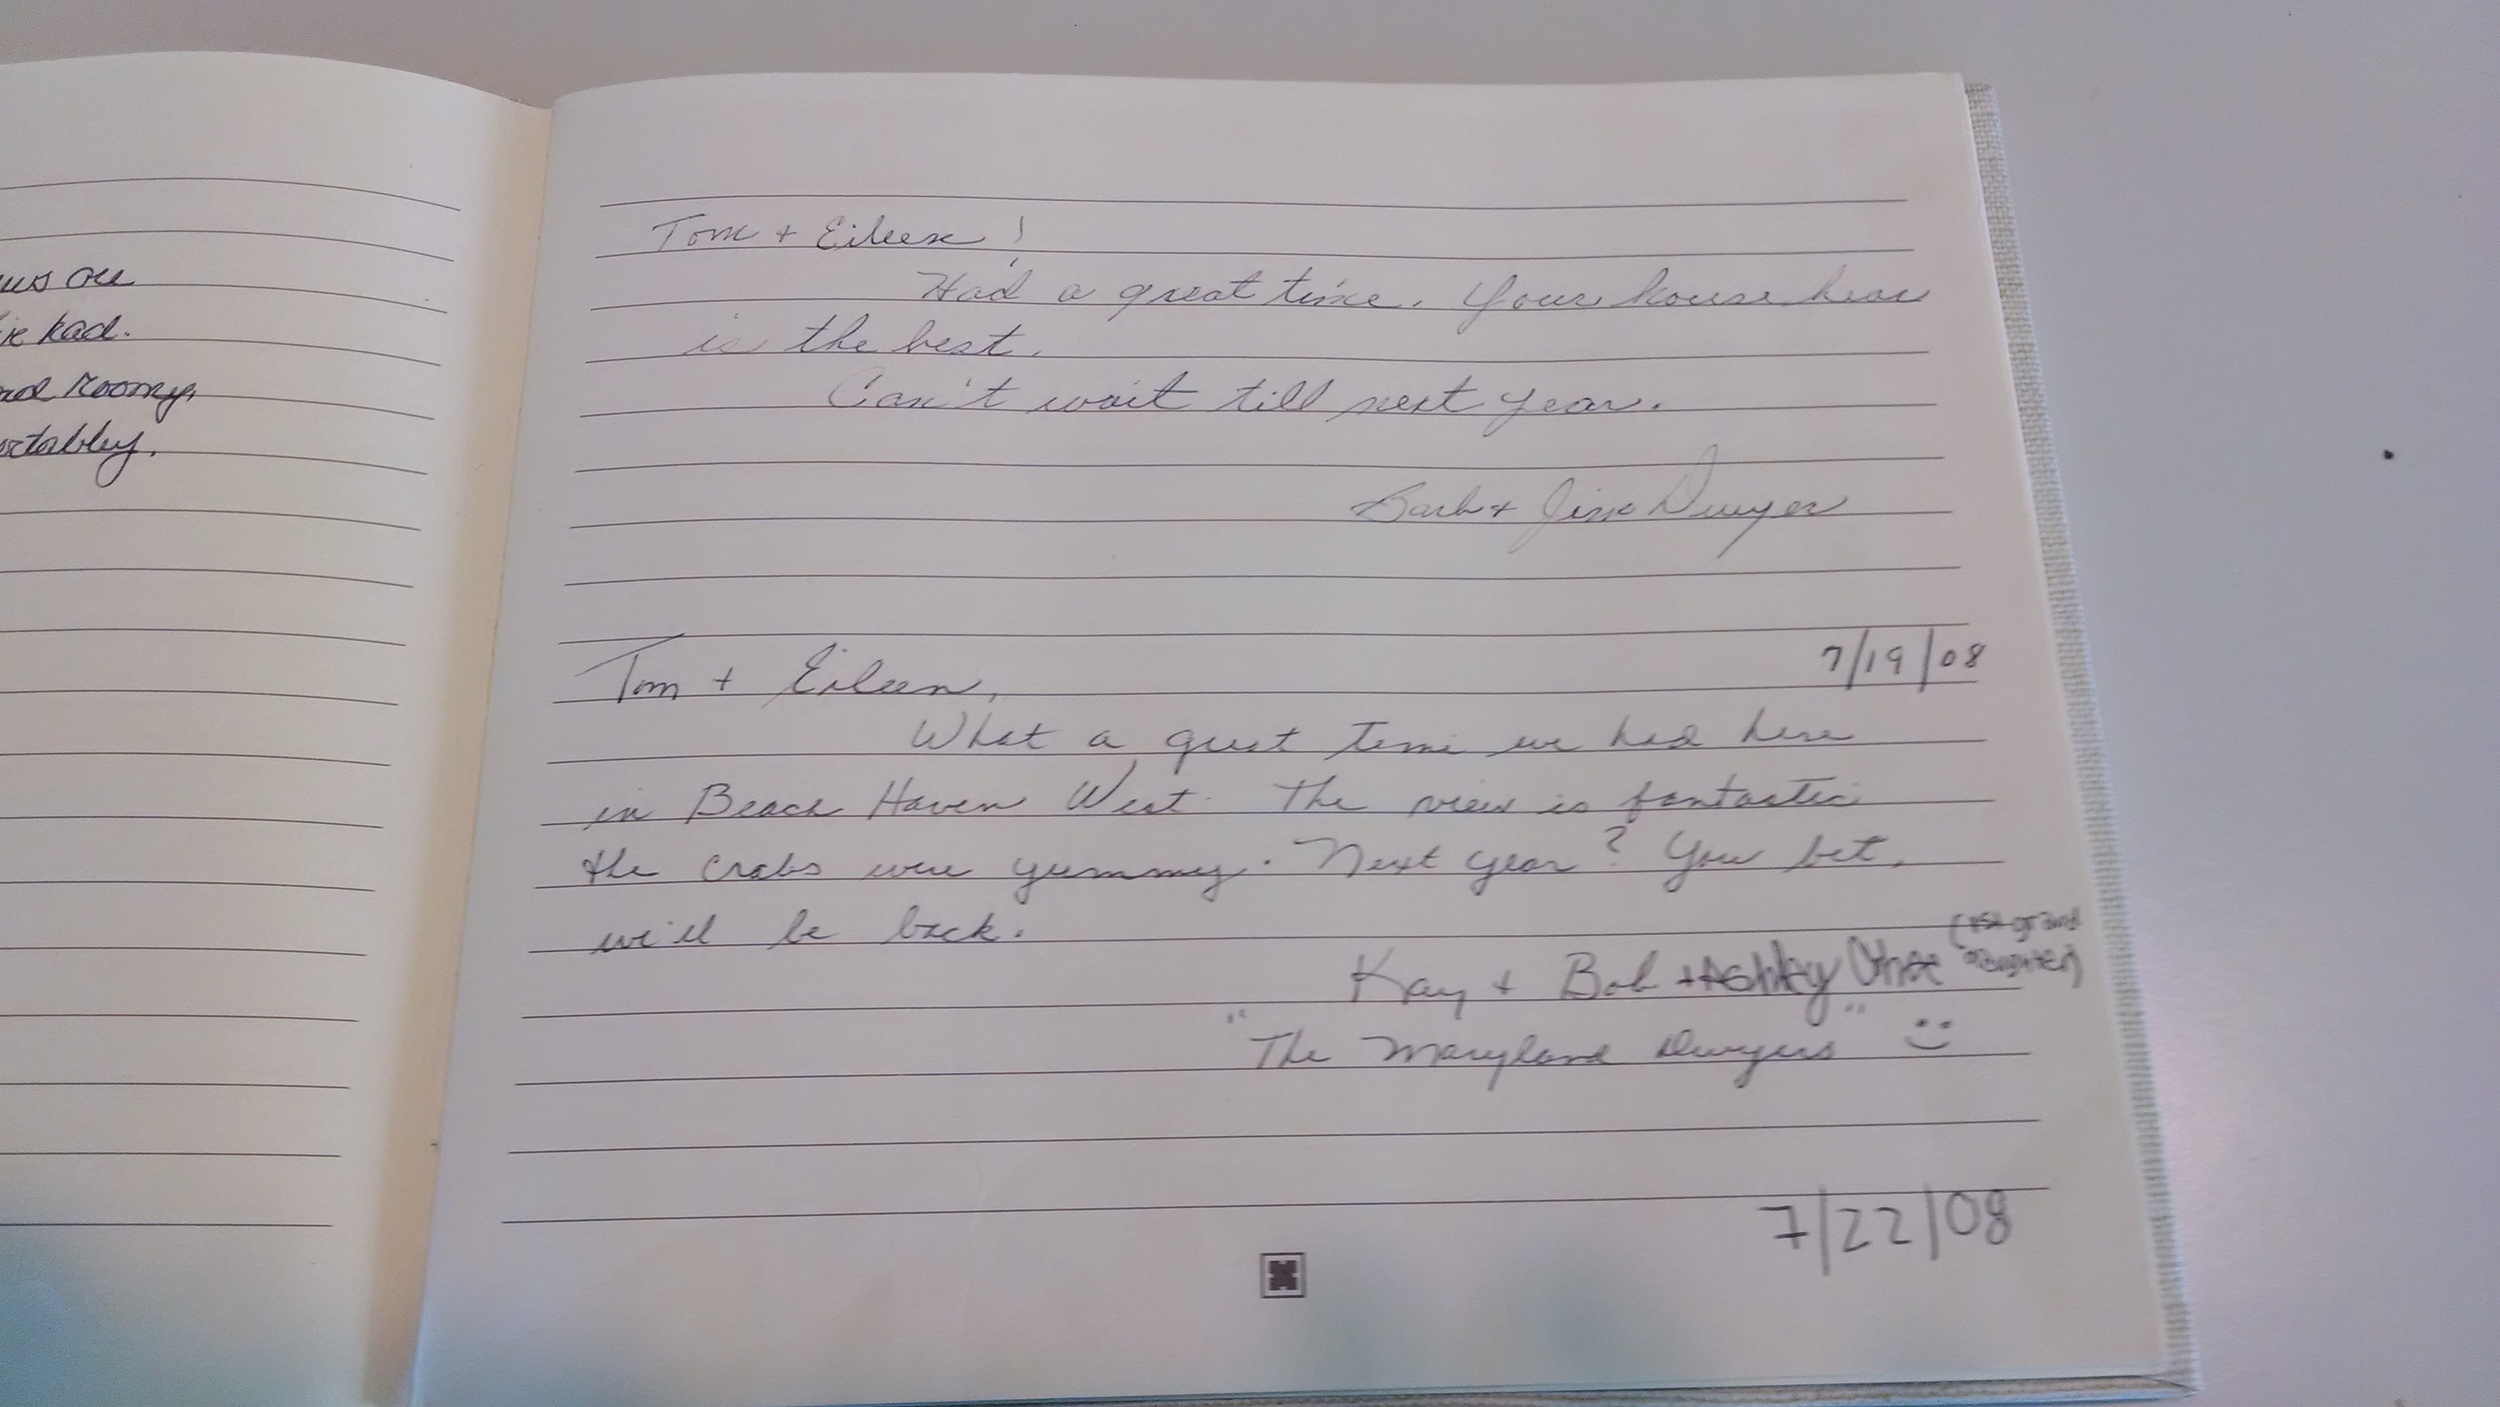 us all
've had.
and roomy,
ortabley.
Tom + Eileen!
Had a great time. Your house here
is the best.
Can't wait till next year.
Barb + Jim Dwyer
7/19/08
Tom + Eileen,
What a great time we had here
in Beach Haven West. The view is fantastic
the crabs were yummy. Next year? You bet,
we'll be back.
Kay + Bob + Ashley (1st grand daughter)
"The Maryland Dwyers"
7/22/08